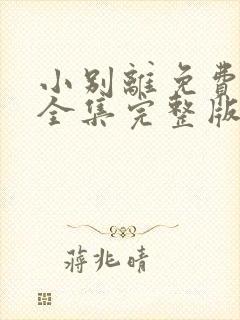 小别離免費
全集完整版
蔣兆晴